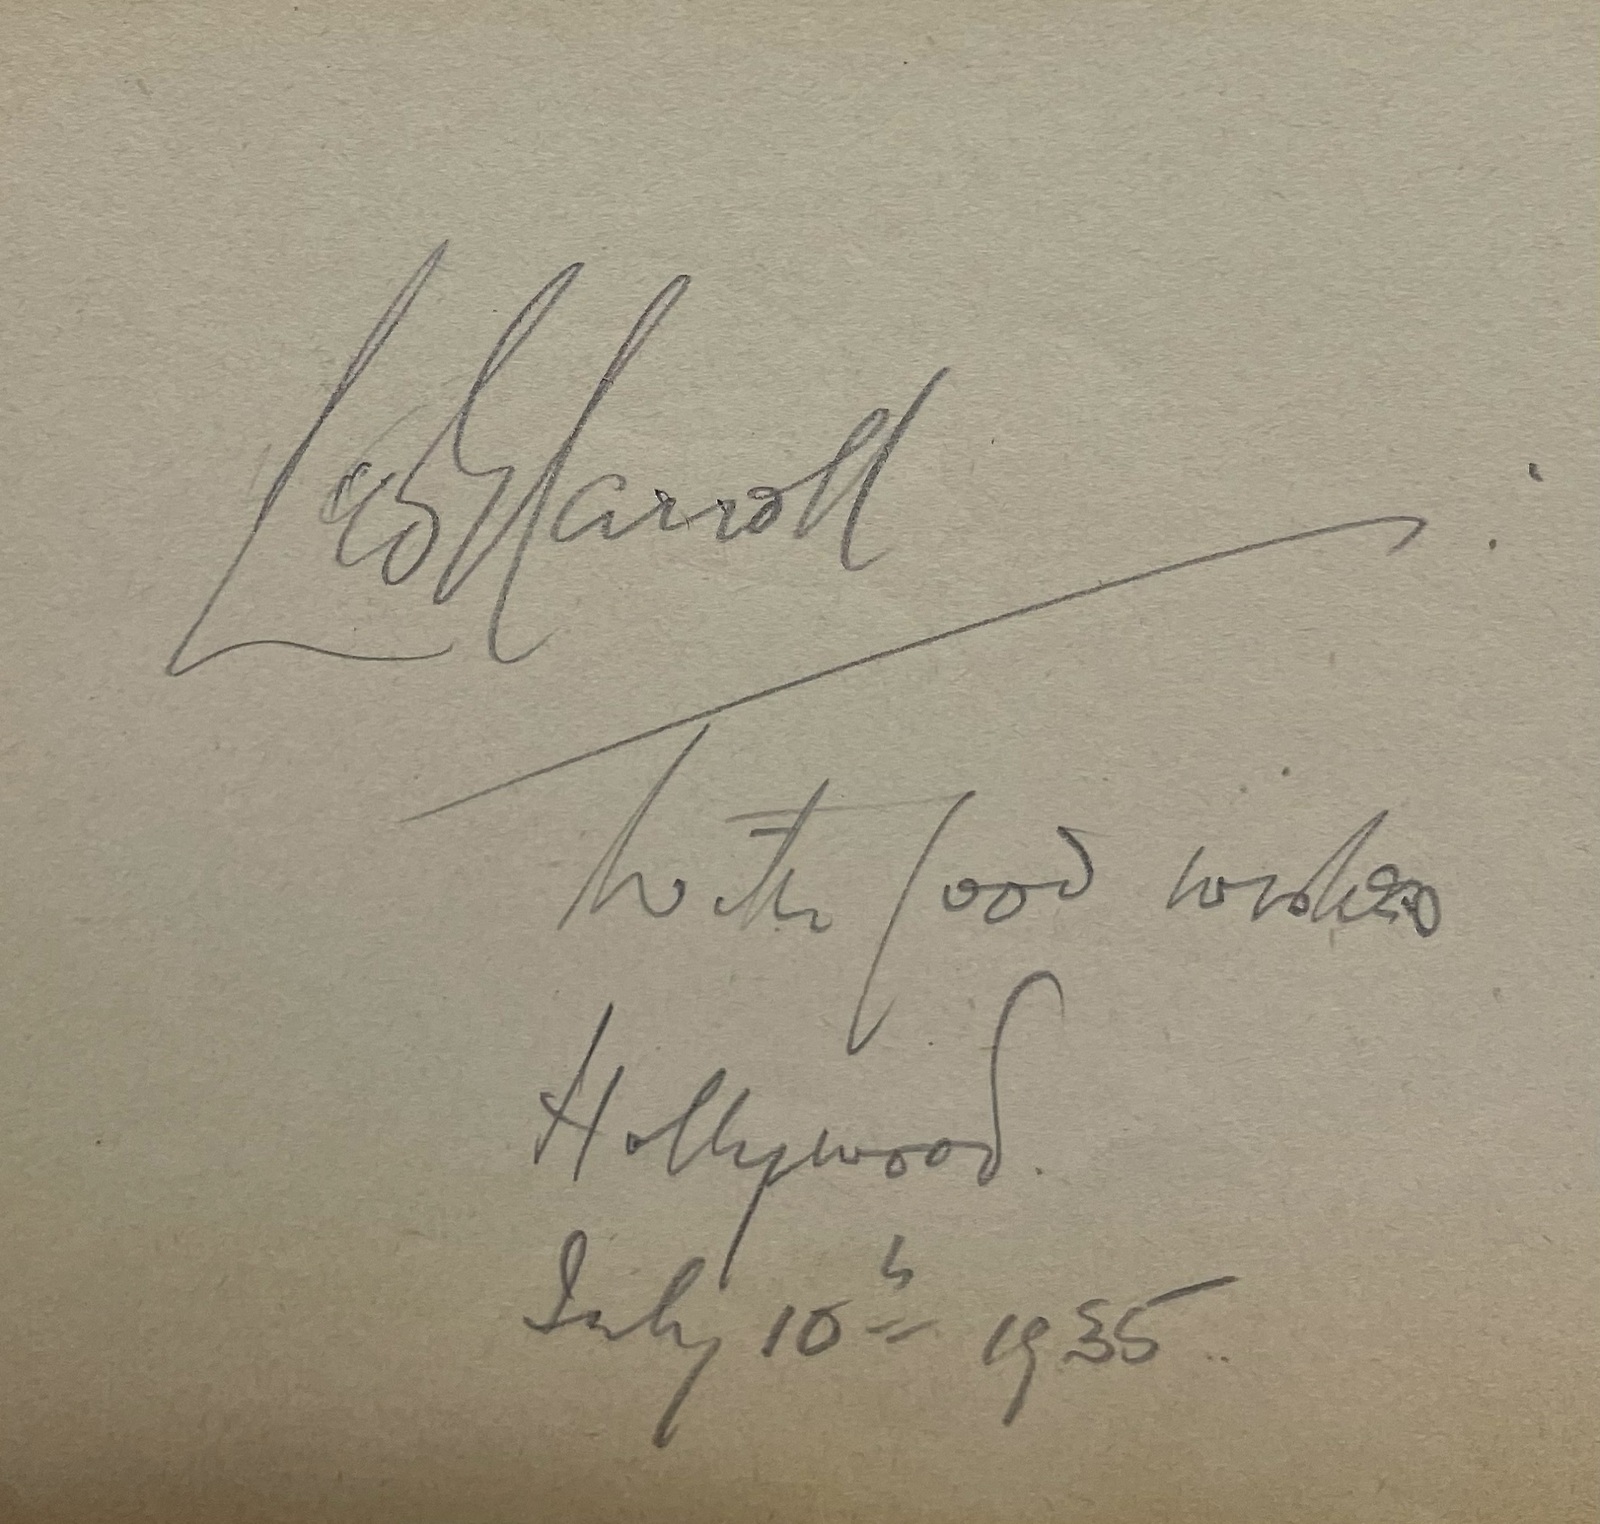 Leo G Carroll
With good wishes
Hollywood.
July 10th 1935.